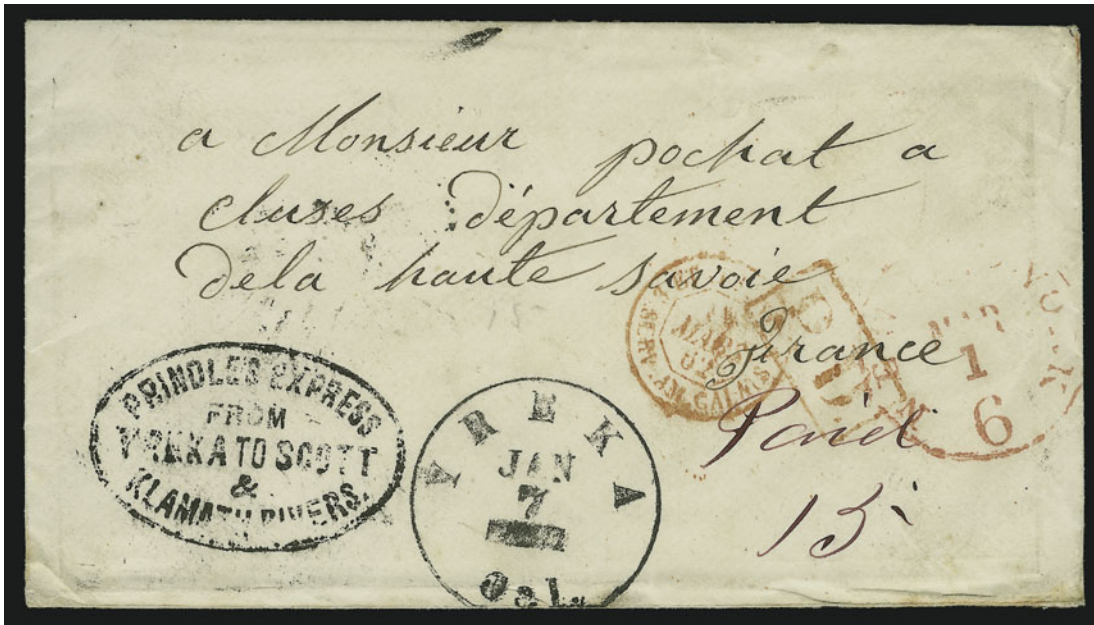 a Monsieur pochat a
cluses département
dela haute savoie
France
Paid
15
PRINDLE'S EXPRESS
FROM
YREKA TO SCOTT
&
KLAMATH RIVERS.
YREKA
JAN
7
Cal.
MARS
62
SERV. AM. CALAIS
PD
YORK
MAR
1
6